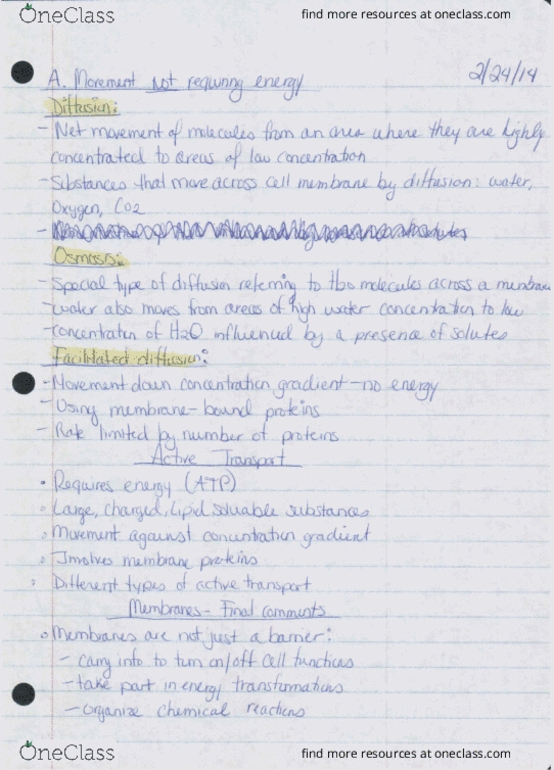 OneClass
find more resources at oneclass.com
2/24/14
A. Movement not requiring energy
Diffusion:
- Net movement of molecules from an area where they are highly
concentrated to areas of low concentration
- Substances that move across cell membrane by diffusion: water,
Oxygen, CO2
Osmosis:
- Special type of diffusion referring to H2O molecules across a membrane
- water also moves from areas of high water concentration to low
- concentration of H2O influenced by a presence of solutes
Facilitated diffusion:
- Movement down concentration gradient - no energy
- Using membrane-bound proteins
- Rate limited by number of proteins
Active Transport
• Requires energy (ATP)
• Large, charged, Lipid soluable substances
• Movement against concentration gradient
• Involves membrane proteins
• Different types of active transport
Membranes - Final comments
• Membranes are not just a barrier:
- carry info to turn on/off cell functions
- take part in energy transformations
- organize chemical reactions
OneClass
find more resources at oneclass.com